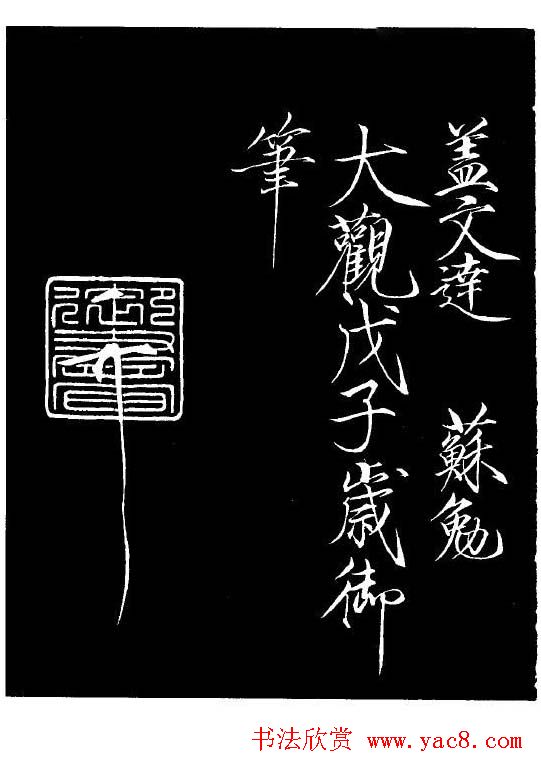 蓋文達 蘇勉
大觀戊子歲御
筆
御書
书法欣赏 www.yac8.com